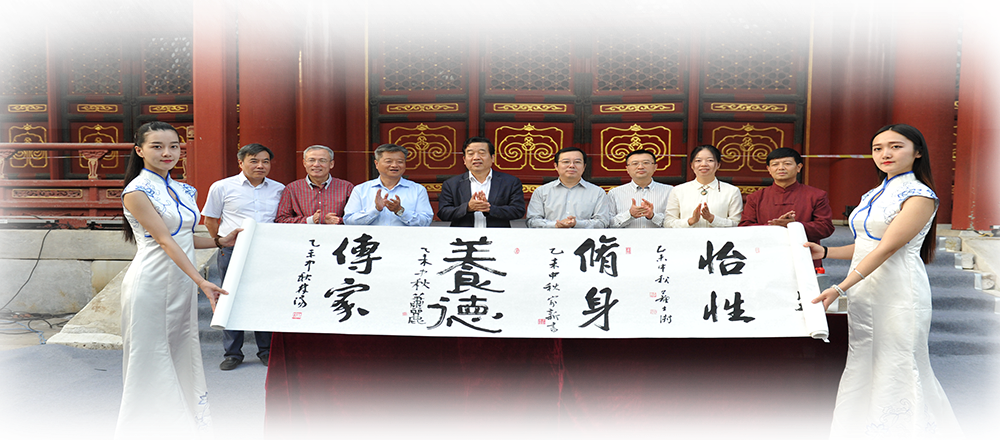 怡性
乙未中秋
脩身
乙未中秋
養德
乙未中秋
傳家
乙未中秋